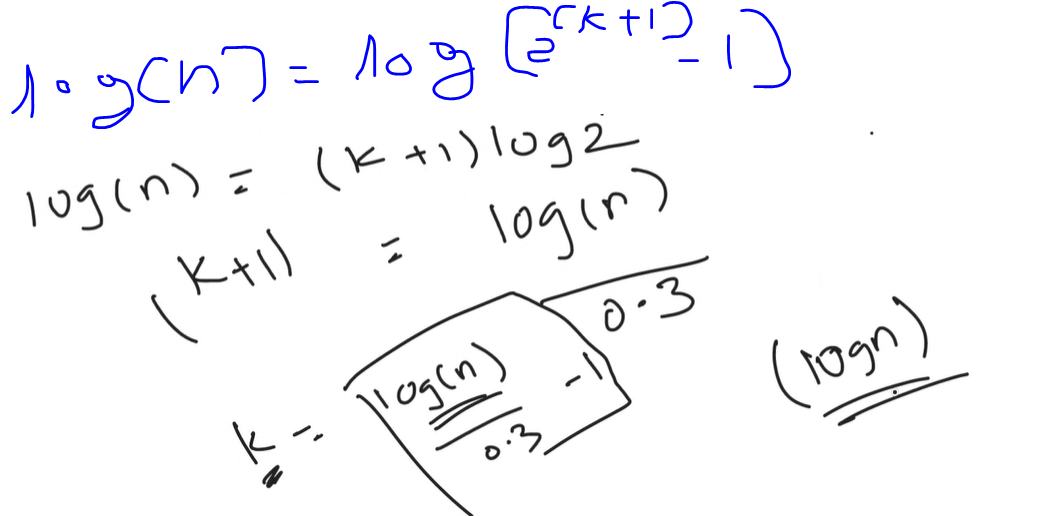 log(n) = log [2^(k+1) - 1]
log(n) = (k+1) log 2
(k+1) = log(n)
0.3
k = log(n) - 1
0.3
(logn)